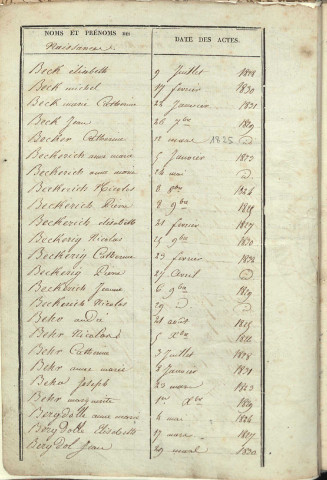 NOMS ET PRÉNOMS DES
Naissances
DATE DES ACTES.
Beck élisabeth 9 Juillet 1818
Beck michel 17 fevrier 1830
Beck marie Catherine 22 Janvier 1831
Beck Jean 26 7bre 1819
Becker Catherine 12 mars 1825
Beckerich anne marie 5 Janvier 1823
Beckerich anne marie 24 mai
Beckerich Nicolas 8 8bre 1826
Beckerich Pierre 8 9bre
Beckerich élisabeth 21 fevrier 1817
Beckerig Nicolas 25 9bre 1830
Beckerig Catherine 23 fevrier 1832
Beckerig Pierre 27 Avril
Beckerich Jeanne 6 9bre 1819
Beckerich Nicolas 29
Behr andré 21 août 1825
Behr Nicolas 5 Xbre
Behr Catherine 3 Juillet 1828
Behr anne marie 4 Janvier 1831
Behr Joseph 23 mars 1823
Behr marguerite 1er Xbre 1829
Bergdoll anne marie 4 mai 1826
Bergdoll Elisabeth 17 mars 1827
Bergdol Jean 29